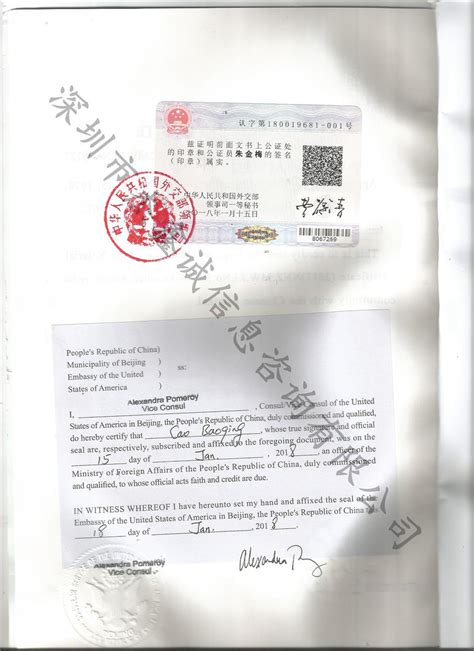 认字第180019681-001号
兹证明前面文书上公证处
的印章和公证员朱金梅的签名
（印章）属实。
中华人民共和国外交部
领事司一等秘书
二〇一八年一月十五日
8067269
中华人民共和国外交部
深圳市 诚信息咨询有限公司
People's Republic of China)
Municipality of Beijing )
Embassy of the United ) ss:
States of America )
Alexandra Pomeroy
I, Vice Consul , Consul/Vice Consul of the United
States of America in Beijing, the People's Republic of China, duly commissioned and qualified,
do hereby certify that Cao Baoqing, whose true signature and official
seal are, respectively, subscribed and affixed to the foregoing document, was on the
15 day of Jan. 2018, an officer of the
Ministry of Foreign Affairs of the People's Republic of China, duly commissioned
and qualified, to whose official acts faith and credit are due.
IN WITNESS WHEREOF I have hereunto set my hand and affixed the seal of the
Embassy of the United States of America in Beijing, the People's Republic of China the
18 day of Jan. 2018.
Alexandra Pomeroy
Vice Consul